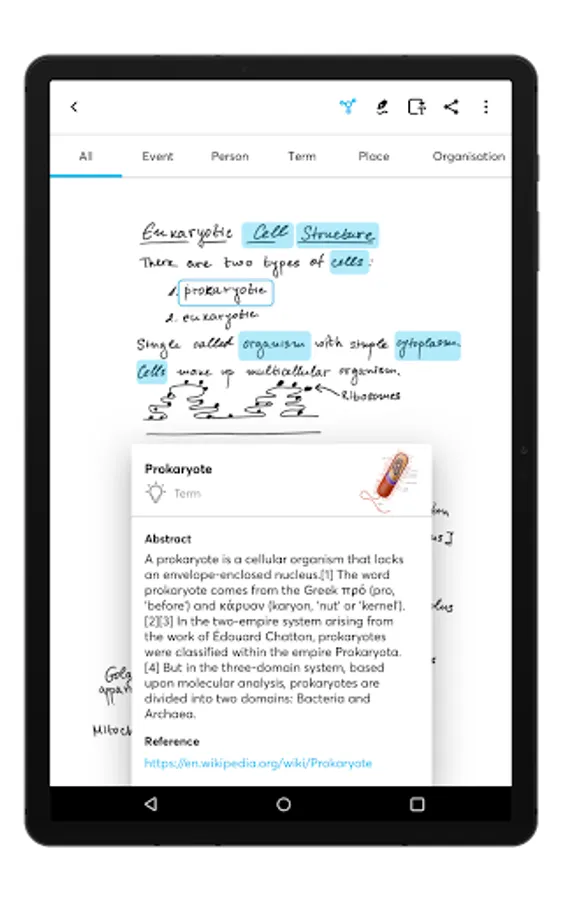 All Event Person Term Place Organisation
Eukaryotic Cell Structure
There are two types of cells:
1. prokaryotic
2. eukaryotic
Single called organism with simple cytoplasm.
Cells make up multicellular organism.
Ribosomes
Prokaryote
Term
Abstract
A prokaryote is a cellular organism that lacks
an envelope-enclosed nucleus.[1] The word
prokaryote comes from the Greek πρό (pro,
'before') and κάρυον (karyon, 'nut' or 'kernel').
[2][3] In the two-empire system arising from
the work of Édouard Chatton, prokaryotes
were classified within the empire Prokaryota.
[4] But in the three-domain system, based
upon molecular analysis, prokaryotes are
divided into two domains: Bacteria and
Archaea.
Golg
appar
Mitoch
Reference
https://en.wikipedia.org/wiki/Prokaryote